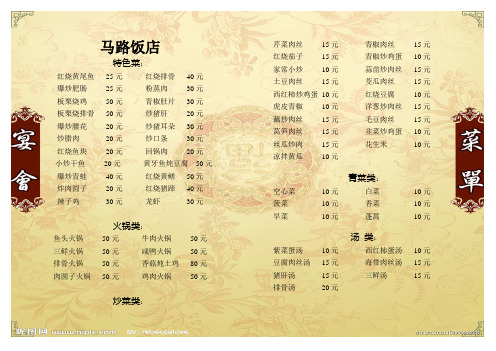 宴會
马路饭店
特色菜:
红烧黄尾鱼 25元 红烧排骨 40元
爆炒肥肠 25元 粉蒸肉 30元
板栗烧鸡 50元 青椒肚片 30元
板栗烧排骨 50元 炒猪肝 20元
爆炒腰花 20元 炒猪耳朵 30元
炒腊肉 20元 炒口条 30元
红烧鱼块 20元 回锅肉 20元
小炒干鱼 20元 黄牙鱼炖豆腐 50元
爆炒青蛙 40元 红烧黄鳝 50元
炸肉圆子 20元 红烧猪蹄 40元
辣子鸡 30元 龙虾 30元
火锅类:
鱼头火锅 50元 牛肉火锅 50元
三鲜火锅 50元 咸鸭火锅 50元
排骨火锅 50元 香菇炖土鸡 80元
肉圆子火锅 50元 鸡肉火锅 50元
炒菜类:
芹菜肉丝 15元 青椒肉丝 15元
红烧茄子 15元 青椒炒鸡蛋 10元
家常小炒 10元 蒜苗炒肉丝 15元
土豆肉丝 15元 茭瓜肉丝 15元
西红柿炒鸡蛋 10元 红烧豆腐 10元
虎皮青椒 10元 洋葱炒肉丝 15元
藕炒肉丝 15元 毛豆肉丝 15元
莴笋肉丝 15元 韭菜炒鸡蛋 10元
丝瓜炒肉 15元 花生米 10元
凉拌黄瓜 10元
青菜类:
空心菜 10元 白菜 10元
菠菜 10元 香菜 10元
旱菜 10元 蓬蒿 10元
汤 类:
紫菜蛋汤 10元 西红柿蛋汤 10元
豆腐肉丝汤 15元 海带肉丝汤 15元
猪肝汤 15元 三鲜汤 15元
排骨汤 20元
菜單
昵图网 www.nipic.com